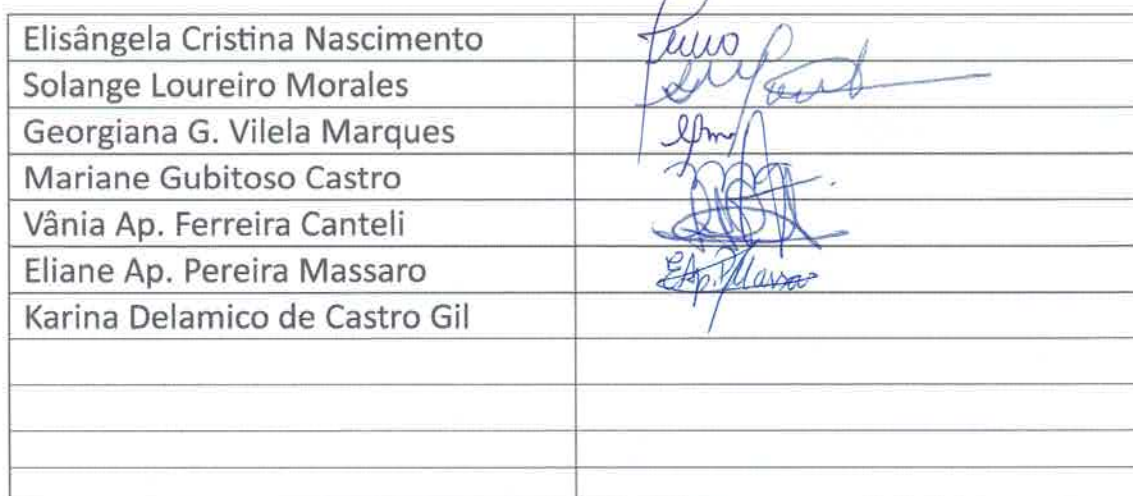 Elisângela Cristina Nascimento
Solange Loureiro Morales
Georgiana G. Vilela Marques
Mariane Gubitoso Castro
Vânia Ap. Ferreira Canteli
Eliane Ap. Pereira Massaro E.Ap.P.Massaro
Karina Delamico de Castro Gil